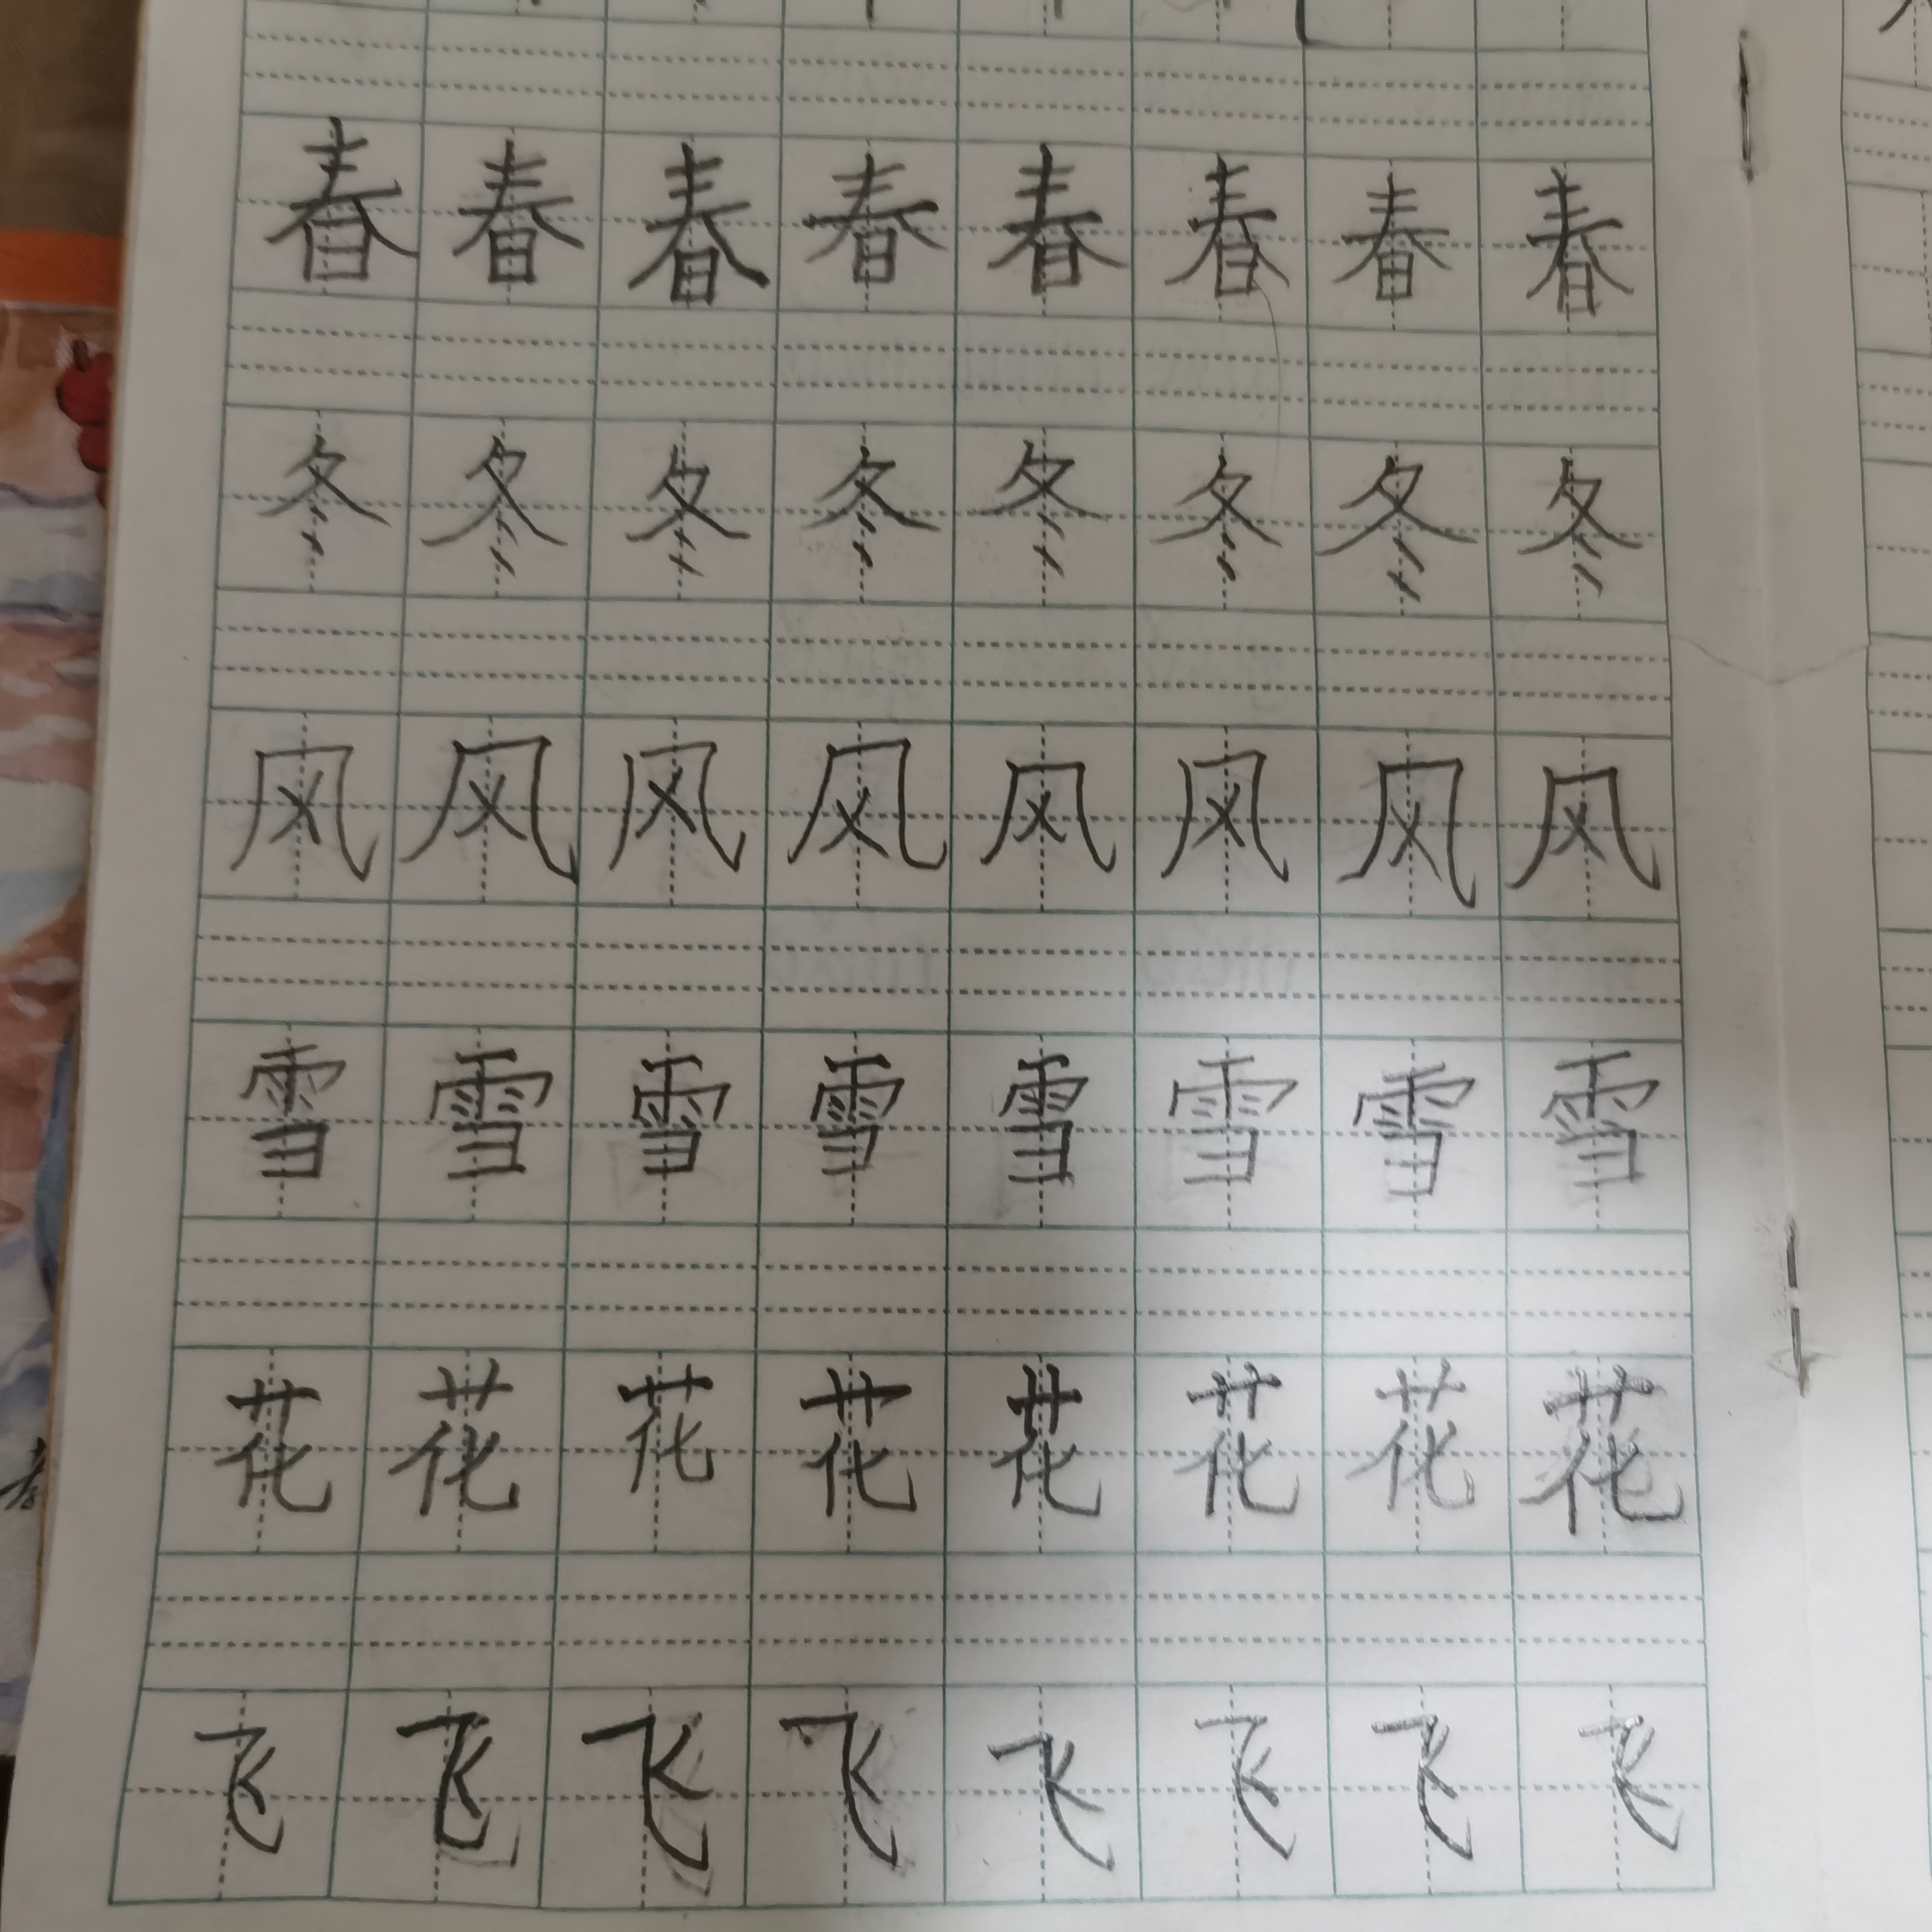 春春春春春春春春
冬冬冬冬冬冬冬冬
风风风风风风风风
雪雪雪雪雪雪雪雪
花花花花花花花花
飞飞飞飞飞飞飞飞